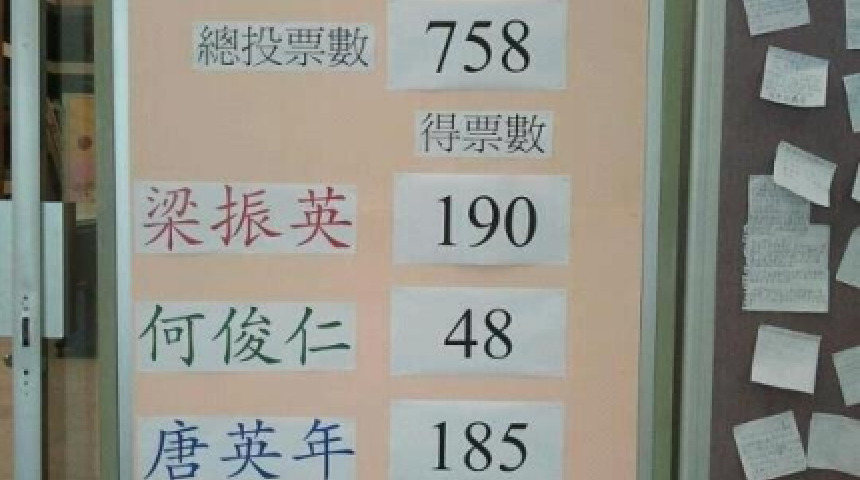 總投票數 758
得票數
梁振英 190
何俊仁 48
唐英年 185